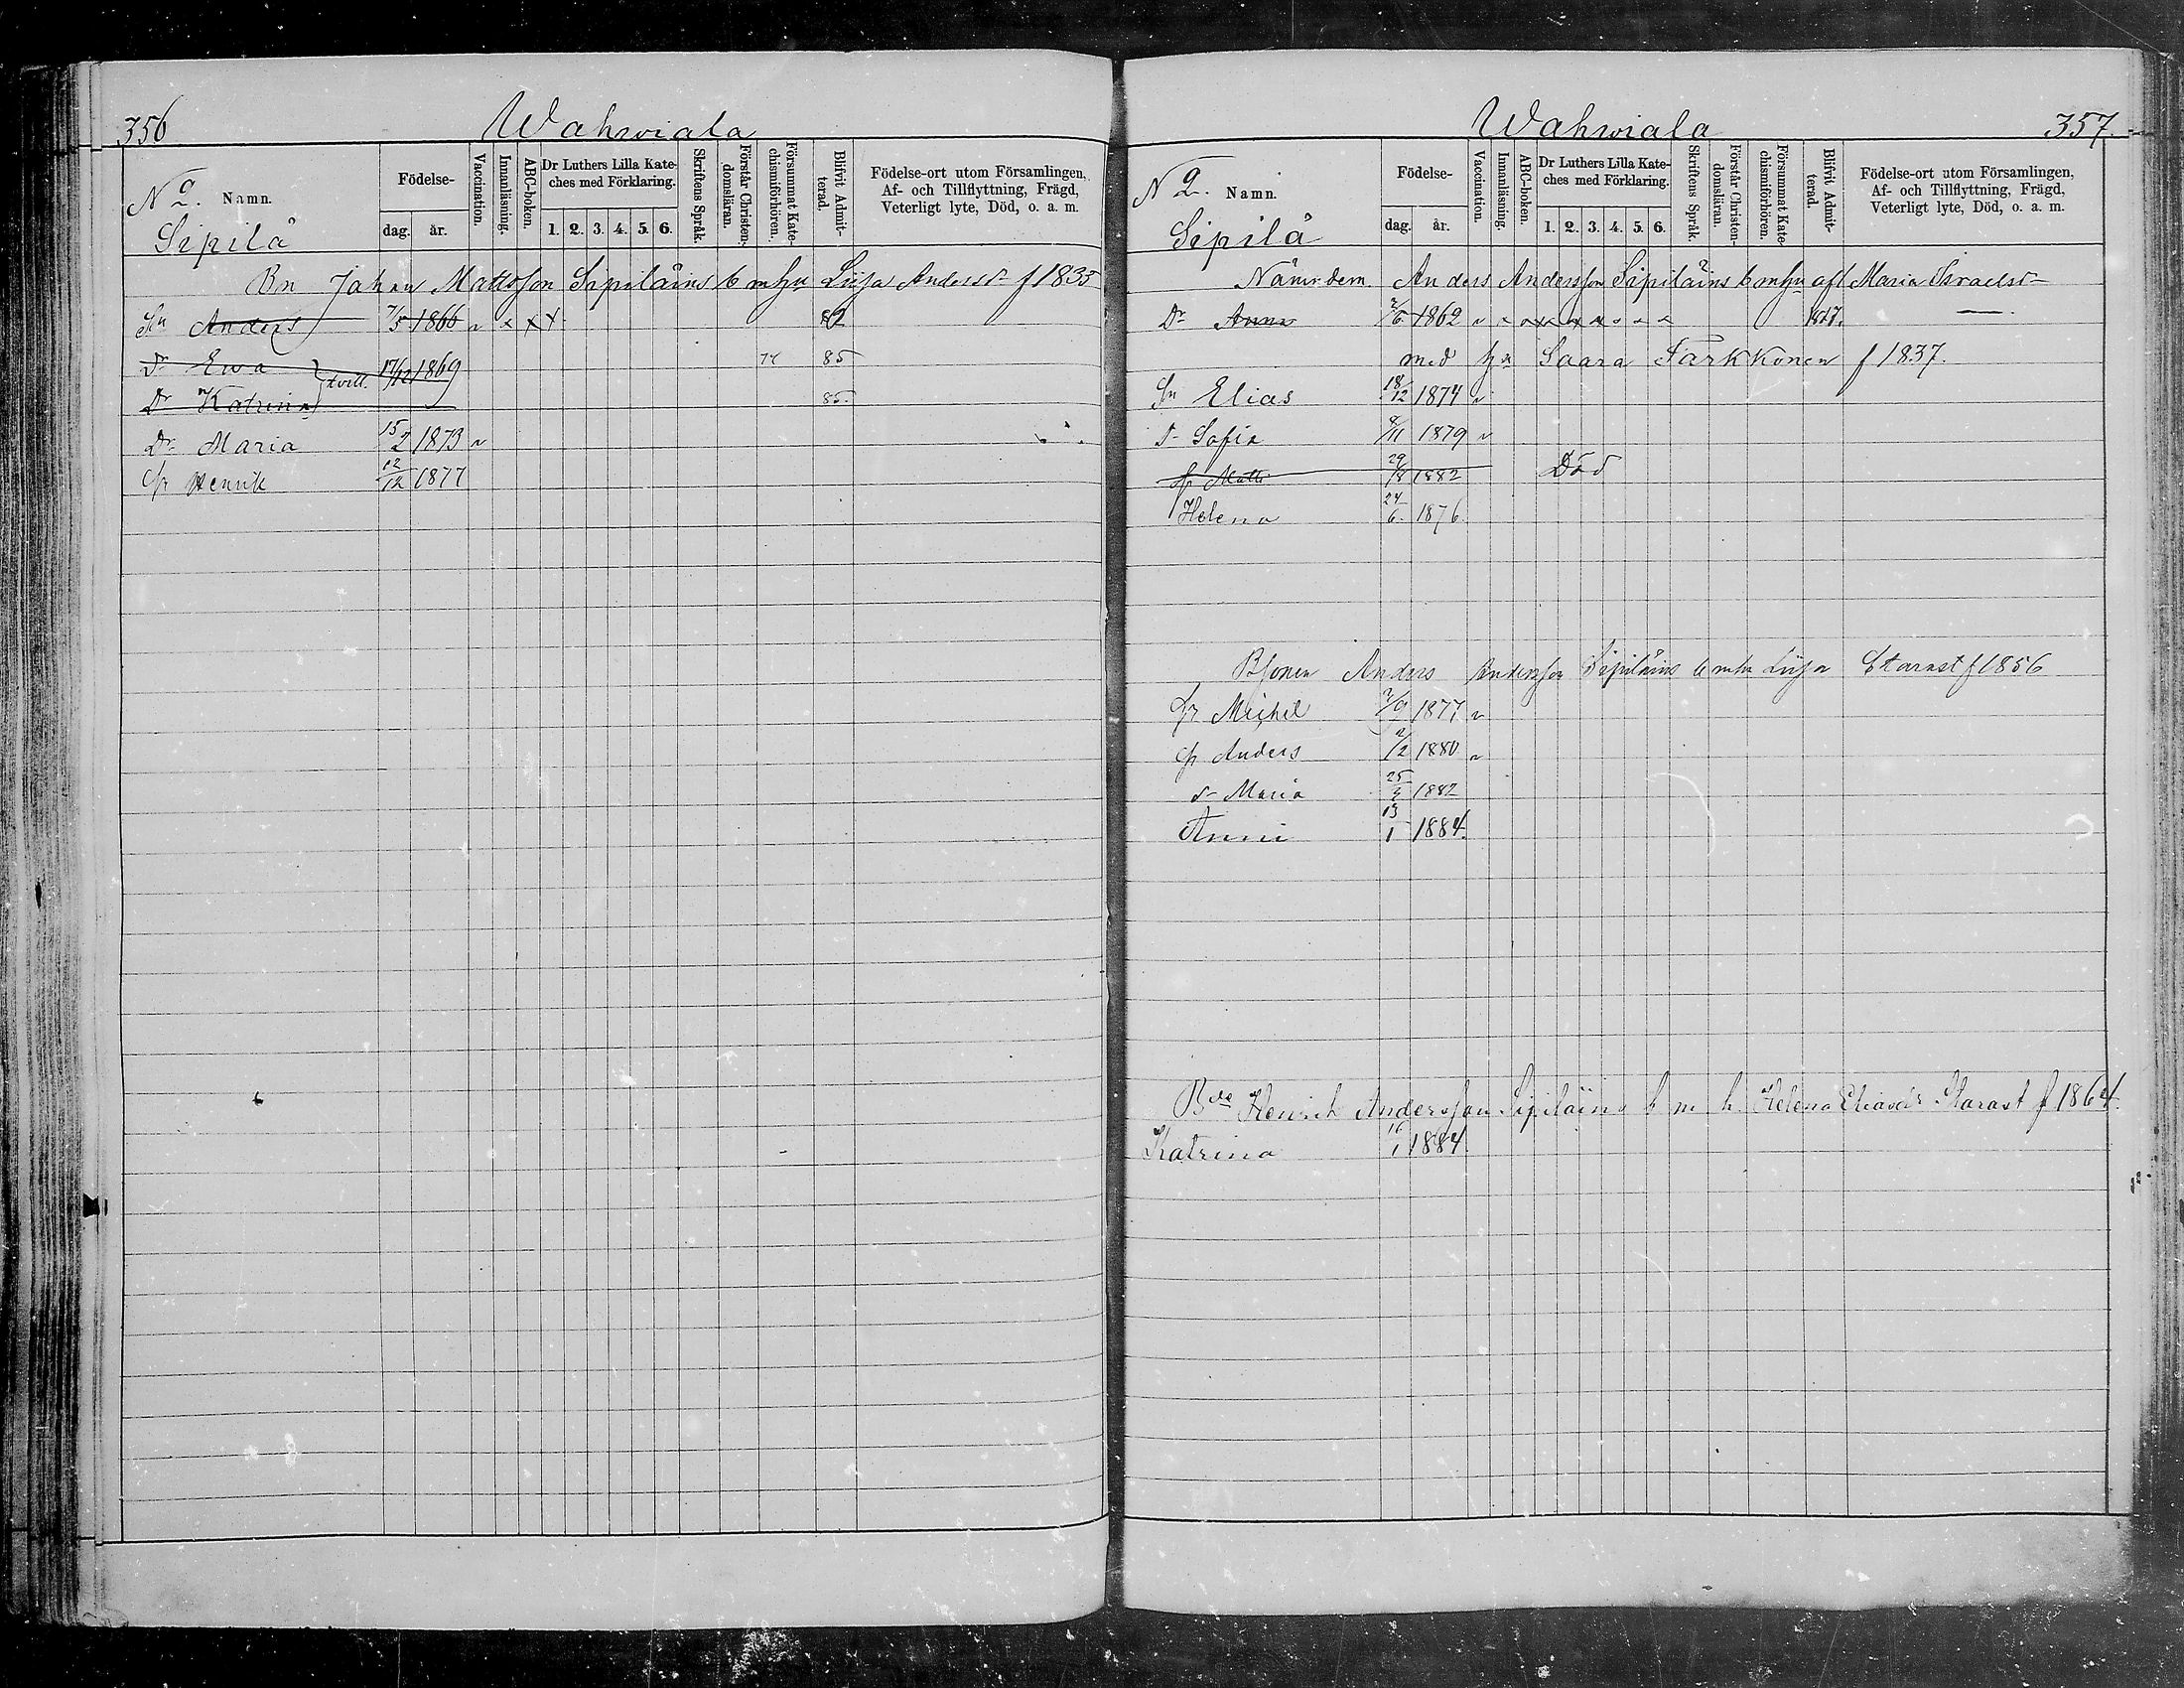 356
Wahwiala
N 2. Namn.
Födelse-
dag. år.
Vaccination.
Innanläsning.
ABC-boken.
Dr Luthers Lilla Kate-
ches med Förklaring.
1. 2. 3. 4. 5. 6.
Skriftens Språk.
Förstår Christen-
domsläran.
Försummat Kate-
chismiförhören.
Blifvit Admit-
terad.
Födelse-ort utom Församlingen,
Af- och Tillflyttning, Frägd,
Veterligt lyte, Död, o. a. m.
Sipilä
Bn Johan Mattsson Sipiläins b m hu Liisa Andersd f 1835
Sn Anders 7/5 1866 v x x x 82
Dr Ewa tvill. 17/12 1869 85
Dr Katrina 85.
Dr Maria 15/2 1873 v
Sn Henrik 12/12 1877
Wahwiala
357.
N 2. Namn.
Födelse-
dag. år.
Vaccination.
Innanläsning.
ABC-boken.
Dr Luthers Lilla Kate-
ches med Förklaring.
1. 2. 3. 4. 5. 6.
Skriftens Språk.
Förstår Christen-
domsläran.
Försummat Kate-
chismiförhören.
Blifvit Admit-
terad.
Födelse-ort utom Församlingen,
Af- och Tillflyttning, Frägd,
Veterligt lyte, Död, o. a. m.
Sipilä
Nämndem. Anders Andersson Sipiläins b m hu afl Maria Israelsd
Dr Anna 2/6 1862 v x x x x x x x x
med hu Saara Tarkkonen f 1837.
Sn Elias 18/12 1874 v
d Sofia 8/11 1879 v
Sn Matts 29/8 1882 Död
Helena 24/6. 1876.
Bsonen Anders Andersson Sipiläins b m hu Liisa Starast f 1856
Sn Michel 2/9 1877 v
Sn Anders 2/2 1880 v
d Maria 25/3 1882
Anni 13/1 1884.
Bde Henrik Andersson Sipiläins b m h. Helena Eliasdr Starast f 1864.
Katrina 16/1 1884